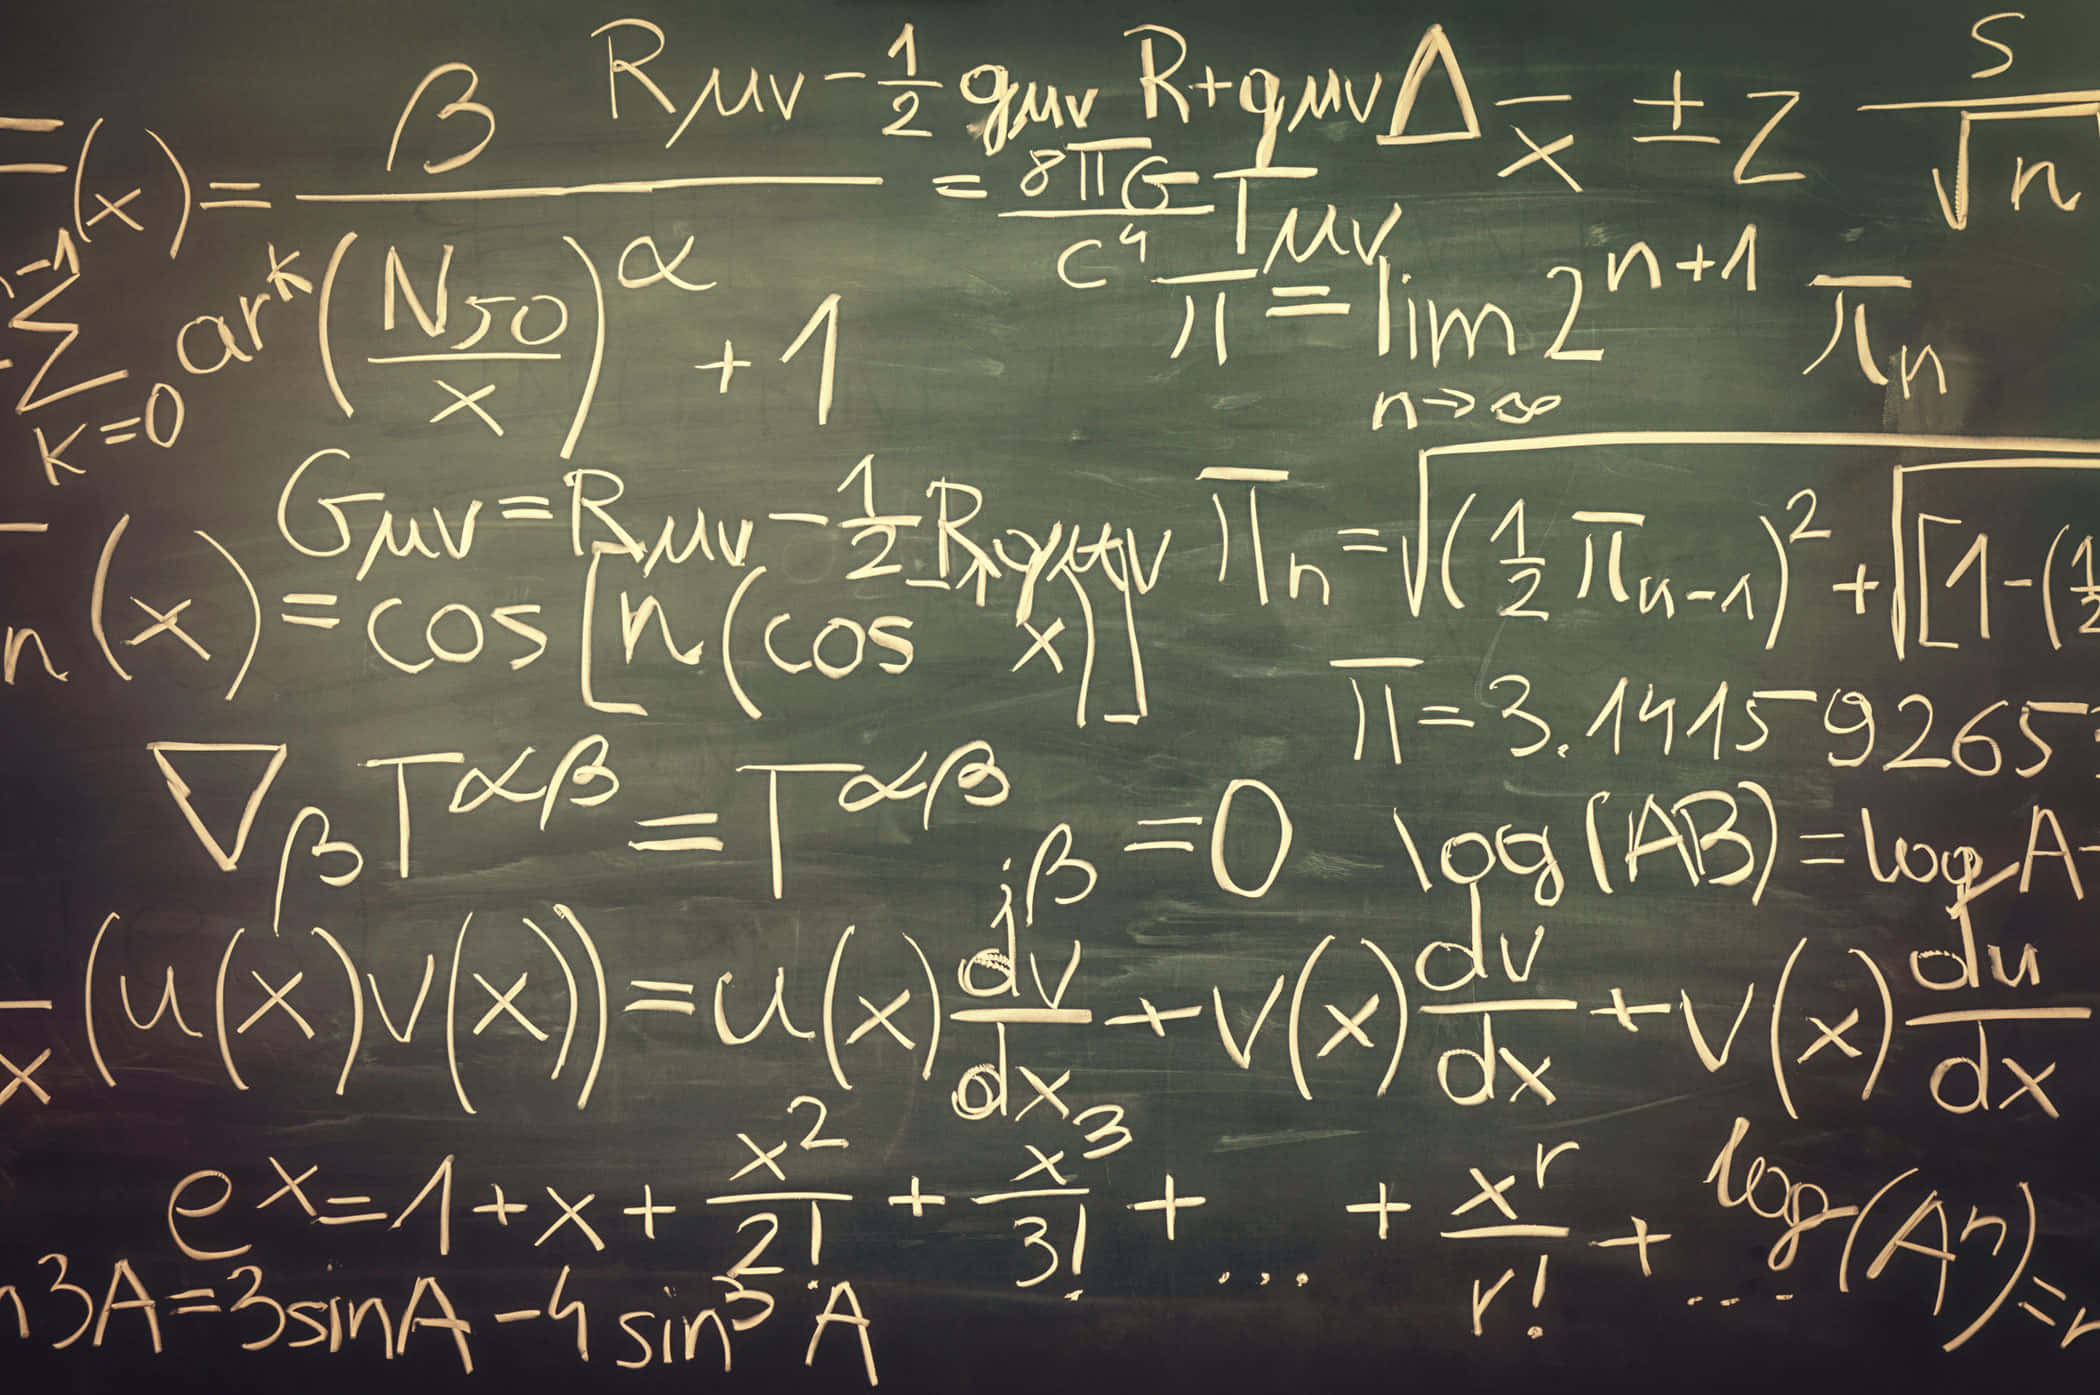 Rμν - 1/2 gμν R + gμν Δ = 8πG/c⁴ Tμν
x̄ ± z s/√n
(x) = β / (N50/x)^α + 1
-1 Σ k=0 ar^k
π = lim n→∞ 2^(n+1) πn
Gμν = Rμν - 1/2 R gμν
πn = √(1/2 πn-1)² + √[1-(1/2
n(x) = cos[n(cos x)]
π = 3.14159265
∇β T^αβ = T^αβ ;β = 0
log(AB) = log A
x (u(x)v(x)) = u(x) dv/dx + v(x) dv/dx + v(x) du/dx
e^x = 1 + x + x²/2! + x³/3! + ... + x^r/r! + ...
log(A^n) =
n3A = 3sinA - 4sin³A